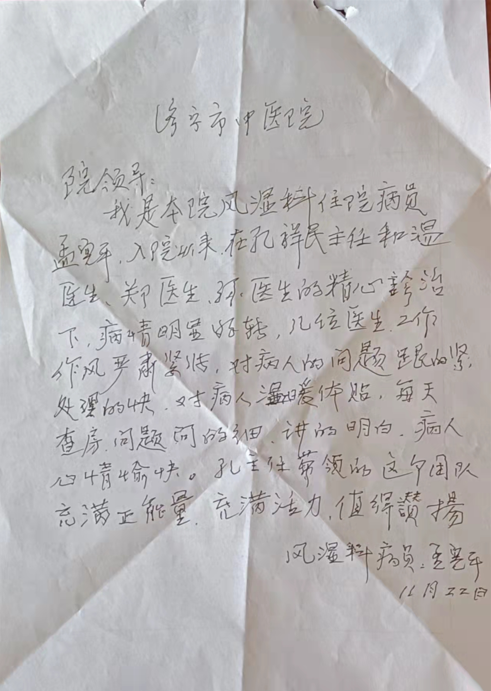 济宁市中医院
院领导:
我是本院风湿科住院病员
孟宪平、入院以来、在孔祥民主任和温
医生、郑医生、医生的精心診治
下、病情明显好转、几位医生、工作
作风严肃紧张、对病人的问题跟的紧,
处理的快、对病人温暖体贴、每天
查房、问题问的细、讲的明白、病人
心情愉快。孔主任带领的这个团队
充满正能量、充满活力、值得讃揚
风湿科病员:孟宪平
11月22日